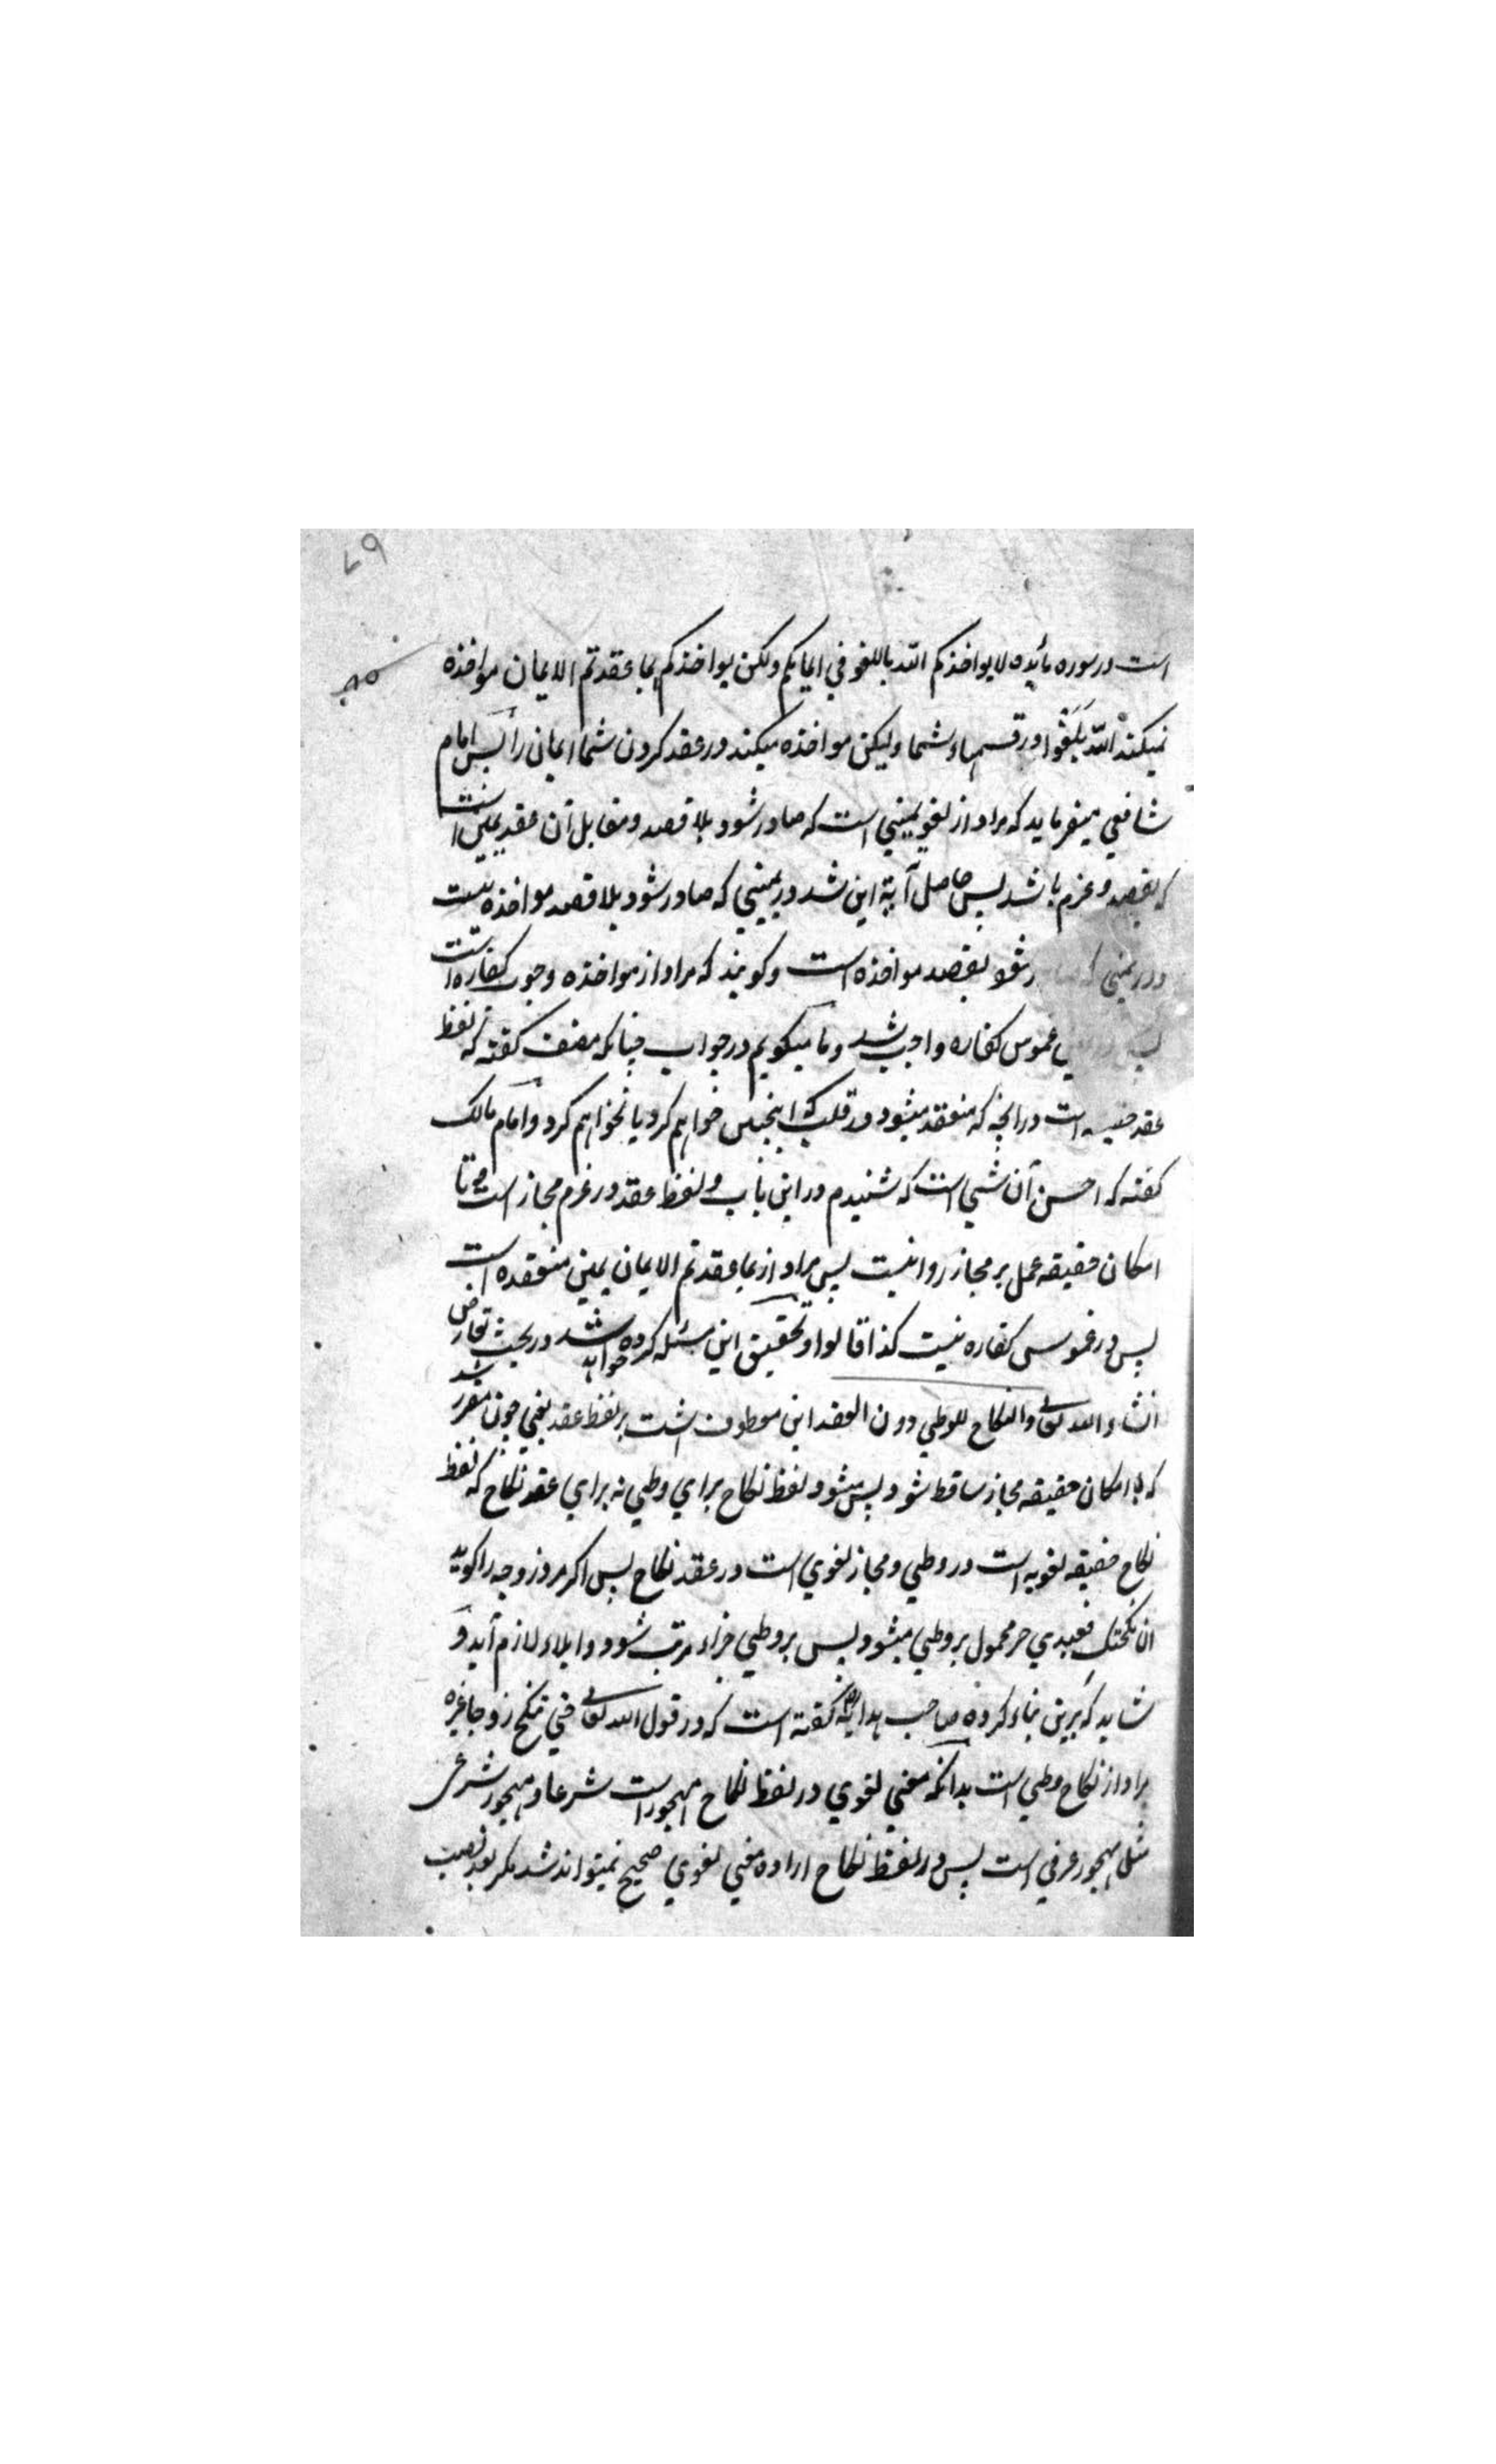 ۷۹
است در سوره مائده لا یواخذکم الله باللغو في ایمانکم ولکن یواخذکم بما عقدتم الایمان مواخذه
نمیکند الله بلغو در قسمهاء شما ولیکن مواخذه میکند در عقد کردن شما ایمان را پس امام
شافعي میفرماید که مراد از لغو یمیني است که صادر شود بلا قصد و مقابل آن عقد یمین است
که بقصد و عزم باشد پس حاصل آیة این شد در یمیني که صادر شود بلا قصد مواخذه نیست
و در یمیني که صادر شود بقصد مواخذه است و کویند که مراد از مواخذه وجوب کفاره است
پس غموس کفاره واجب شد و ما میکویم در جواب چنانکه مصنف کفته که لفظ
عقد حقیقه است در آنچه که منعقد میشود در قلب که اینچنین خواهم کرد یا نخواهم کرد و امام مالک
کفته که احسن آن شي است که شنیدم در این باب و لفظ عقد در عزم مجاز است و تا
امکان حقیقه عمل بر مجاز روا نیست پس مراد از بما عقدتم الایمان یمین منعقده است
پس در غموس کفاره نیست کذا قالوا و تحقیق این مسئله کرده خواهد شد در بحث تعارض
انشاء الله تعالی والنکاح للوطي دون العقد این معطوف است بر لفظ عقد یعني چون مقرر شد
که با امکان حقیقه مجاز ساقط شود پس میشود لفظ نکاح براي وطي نه براي عقد نکاح که لفظ
نکاح حقیقه لغویه است در وطي و مجاز لغوي است در عقد نکاح پس اکر مرد زوجه را کوید
ان نکحتک فعبدي حر محمول بر وطي میشود پس بر وطي جزاء مرتب شود و ایلاء لازم آید و
شاید که برین بناء کرده صاحب هدایه کفته است که در قول الله تعالی حتي تنکح زوجا غیره
مراد از نکاح وطي است بدانکه معني لغوي در لفظ نکاح مهجور است شرعا و مهجور شرعي
مثل مهجور عرفي است پس در لفظ نکاح اراده معني لغوي صحیح نمیتواند شد مکر بعد نصب